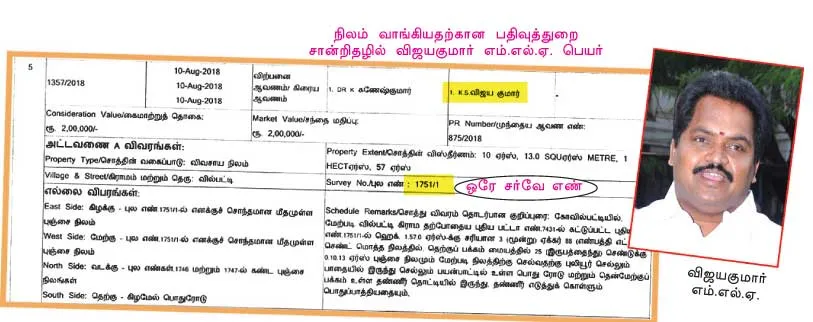 நிலம் வாங்கியதற்கான பதிவுத்துறை
சான்றிதழில் விஜயகுமார் எம்.எல்.ஏ. பெயர்
5
1357/2018
10-Aug-2018
10-Aug-2018
10-Aug-2018
விற்பனை
ஆவணம்/ கிரைய
ஆவணம்
1. DR K கணேஷ்குமார்
1. K.S.விஜய குமார்
Consideration Value/கைமாற்றுத் தொகை:
ரூ. 2,00,000/-
Market Value/சந்தை மதிப்பு:
ரூ. 2,00,000/-
PR Number/முந்தைய ஆவண எண்:
875/2018
அட்டவணை A விவரங்கள்:
Property Type/சொத்தின் வகைப்பாடு: விவசாய நிலம்
Property Extent/சொத்தின் விஸ்தீர்ணம்: 10 ஏர்ஸ், 13.0 SQUஏர்ஸ் METRE, 1
HECTஏர்ஸ், 57 ஏர்ஸ்
Village & Street/கிராமம் மற்றும் தெரு: வில்பட்டி
Survey No./புல எண் : 1751/1
ஒரே சர்வே எண்
எல்லை விபரங்கள்:
East Side: கிழக்கு - புல எண்.1751/1-ல் எனக்குச் சொந்தமான மீதமுள்ள
புஞ்சை நிலம்
West Side: மேற்கு - புல எண்.1751/1-ல் எனக்குச் சொந்தமான மீதமுள்ள
புஞ்சை நிலம்
North Side: வடக்கு - புல எண்கள்.1746 மற்றும் 1747-ல் கண்ட புஞ்சை
நிலங்கள்
South Side: தெற்கு - கிழமேல் பொதுரோடு
Schedule Remarks/சொத்து விவரம் தொடர்பான குறிப்புரை: கோவில்பட்டியில்,
மேற்படி வில்பட்டி கிராம தற்போதைய புதிய பட்டா எண்.7431-ல் கட்டுப்பட்ட
எண்.1751/1-ல் ஹெக். 1.57.0 ஏர்ஸ்-க்கு சரியான 3 (மூன்று) ஏக்கர் 88 (எண்பத்தி
செண்ட் மொத்த நிலத்தில், தெற்குப் பக்கம் மையத்தில் 25 (இருபத்தைந்து) செண்டுக்கு
0.10.13 ஏர்ஸ் புஞ்சை நிலமும் மேற்படி நிலத்திற்கு செல்வதற்கு புலியூர் செல்லும்
பாதையில் இருந்து செல்லும் பயன்பாட்டில் உள்ள பொது ரோடு மற்றும் தென்மேற்குப்
பக்கம் உள்ள தண்ணீர் தொட்டியில் இருந்து, தண்ணீர் எடுத்துக் கொள்ளும்
பொதுப்பாத்தியதையும்.
விஜயகுமார்
எம்.எல்.ஏ.